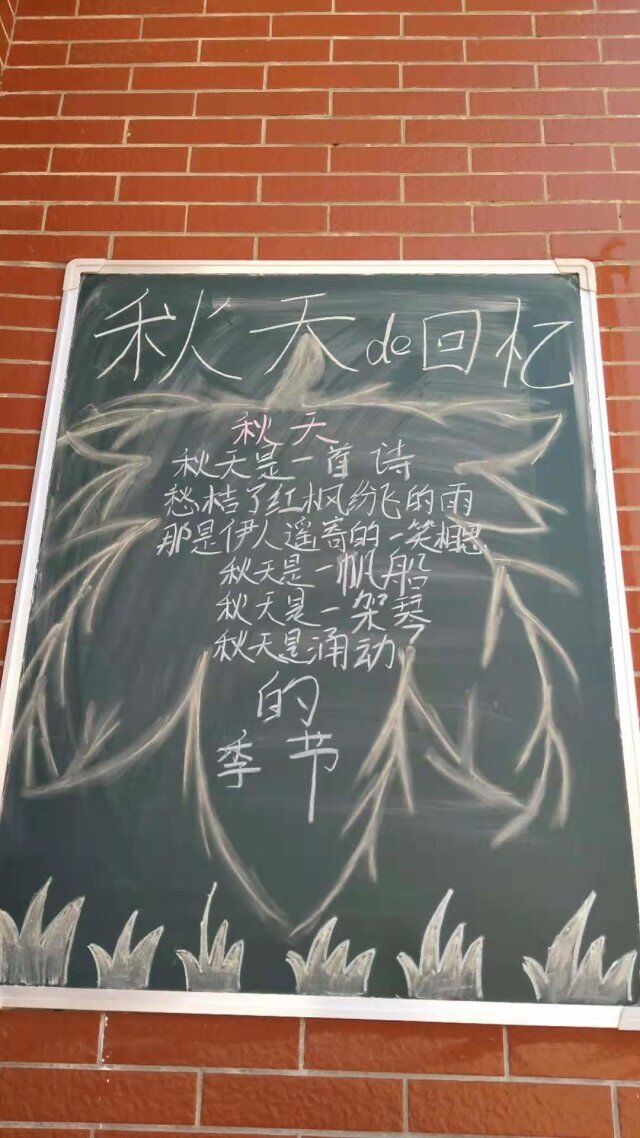 秋天de回忆
秋天
秋天是一首诗
愁桔了红枫纷飞的雨
那是伊人遥寄的一笑相思
秋天是一帆船
秋天是一架琴
秋天是涌动
的
季节